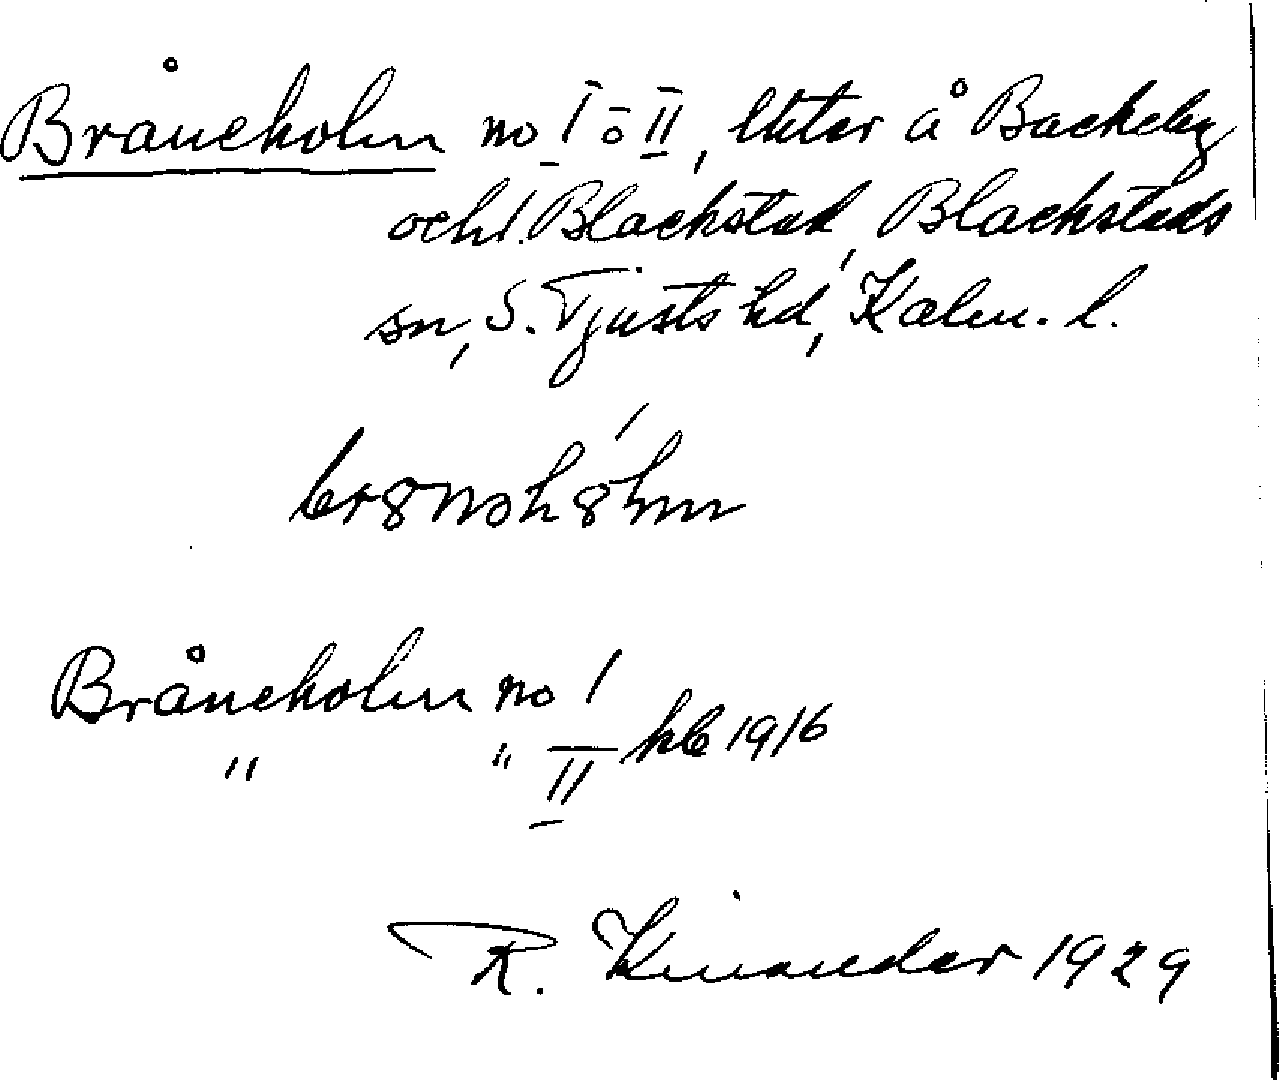 Bråneholm no I o II, lhter å Backeby
och l. Blackstad, Blackstads
sn, S. Tjusts hd, Kalm. l.
Bråneholm no I
" " II kb 1916
R. Kinander 1929